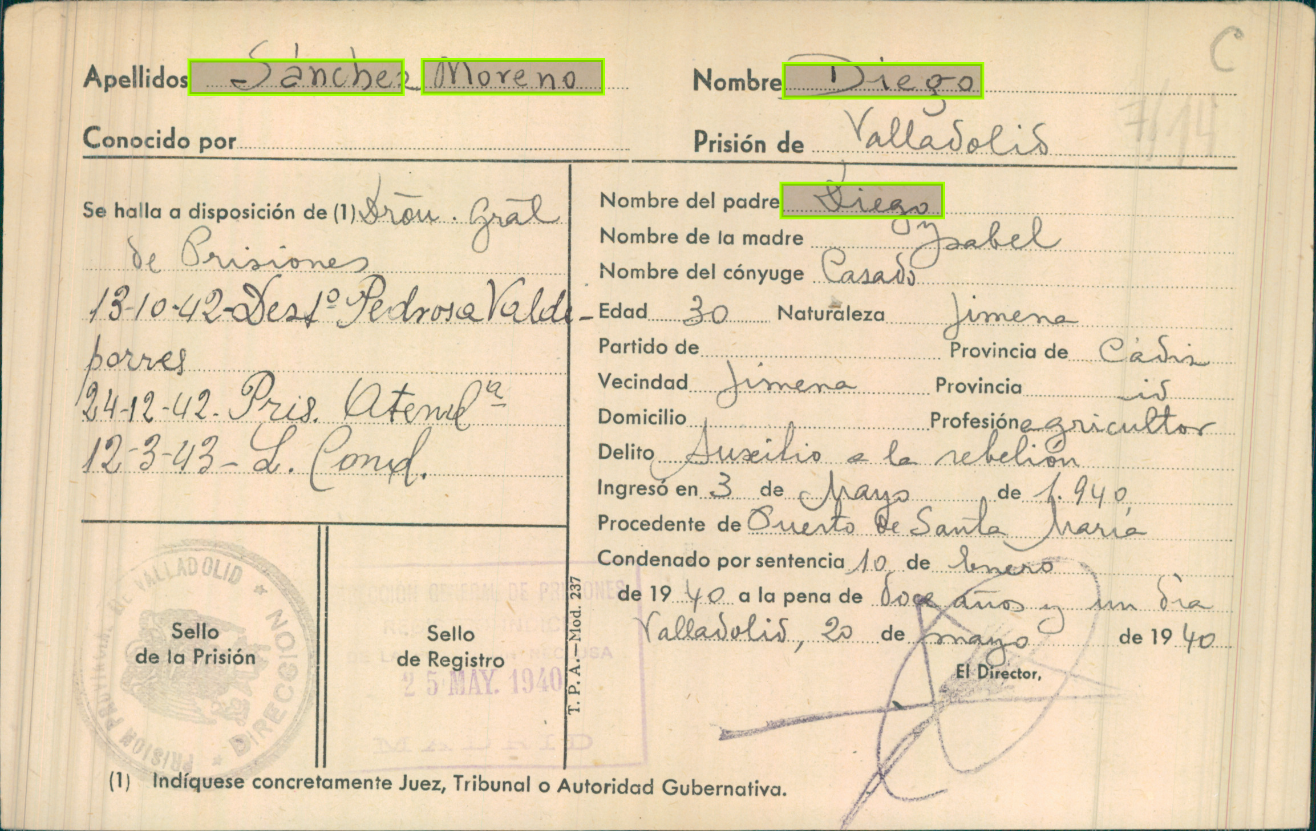 C
Apellidos Sánchez Moreno
Nombre Diego
Conocido por
Prisión de Valladolid
7/15
Se halla a disposición de (1) Dróu. Gral
de Prisiones
13-10-42-Destº Pedrosa Valde-
porres
24-12-42. Pris. Atenuª
12-3-43- L. Cond.
Nombre del padre Diego
Nombre de la madre Ysabel
Nombre del cónyuge Casado
Edad 30 Naturaleza Jimena
Partido de Provincia de Cádiz
Vecindad Jimena Provincia id
Domicilio Profesión agricultor
Delito Auxilio a la rebelión
Ingresó en 3 de Mayo de 1.940
Procedente de Puerto de Santa María
Condenado por sentencia 10 de Enero
de 1940 a la pena de doce años y un día
Valladolid, 20 de mayo de 1940
El Director,
PRISIÓN PROVINCIAL DE VALLADOLID
* DIRECCIÓN *
Sello
de la Prisión
DIRECCIÓN GENERAL DE PRISIONES
Sello
de Registro
25 MAY. 1940
MADRID
T. P. A. Mod. 237
(1) Indíquese concretamente Juez, Tribunal o Autoridad Gubernativa.